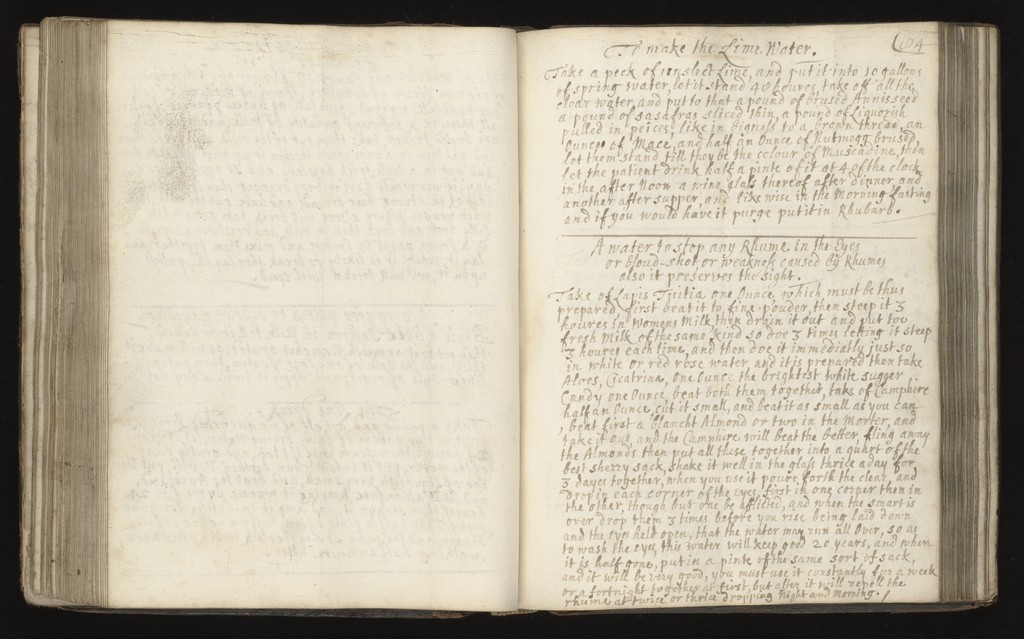 To make the Lime Water.
Take a peck of unslect Lime, and put it into 10 gallons
of spring water, let it stand 48 houres, take off all the
clear water, and put to that a pound of brused Annisseed
a pound of sasafras sliced thin, a pound of Liquorish
pulled in peices, like in bigness to a brown thread, an
Ounce of Mace, and half an Ounce of Nutmegg brused,
let them stand till they be the colour of Muscadine, then
let the patient drink half a pinte of it at 4 of the clock
in the after Noon a wine glass thereof after dinner and
another after supper, and likewise in the Morning fasting
and if you would have it purge put it in Rhubarb.
A water to stop any Rhume in the Eyes
or bloud-shot or weakness caused by Rhumes
also it preserves the sight.
Take of Lapis Tutia one Ounce which must be thus
prepared, first beat it to fine-pouder, then steep it 3
houres in womens Milk then drain it out and put too
fresh Milk of the same kind so doe 3 times letting it steep
3 houres each time, and then doe it immediatly just so
in white or red rose water, and it is prepared then take
Aloes, Cicatrina, one Ounce the brightest white sugger
Candy one Ounce, beat both them together, take of Camphire
half an Ounce, cut it small, and beat it as small as you can
, beat first a blancht Almond or two in the Morter, and
take it out, and the Camphire will beat the better, fling away
the Almonds then put all these together into a quart of the
best sherry sack, shake it well in the glass thrice a day for
3 dayes together, when you use it poure forth the clear, and
drop in each corner of the eyes, first in one corner then in
the other, though but one be afflicted, and when the smart is
over drop them 3 times before you rise being laid down
and the eyes held open, that the water may run all Over, so as
to wash the eyes, this water will keep good 20 years, and when
it is half gone, put in a pinte of the same sort of sack,
and it will be very good, you must use it constantly for a week
or a fortnight together at first, but after it will repell the
rhume at twice or thrice dropping Night and Morning.